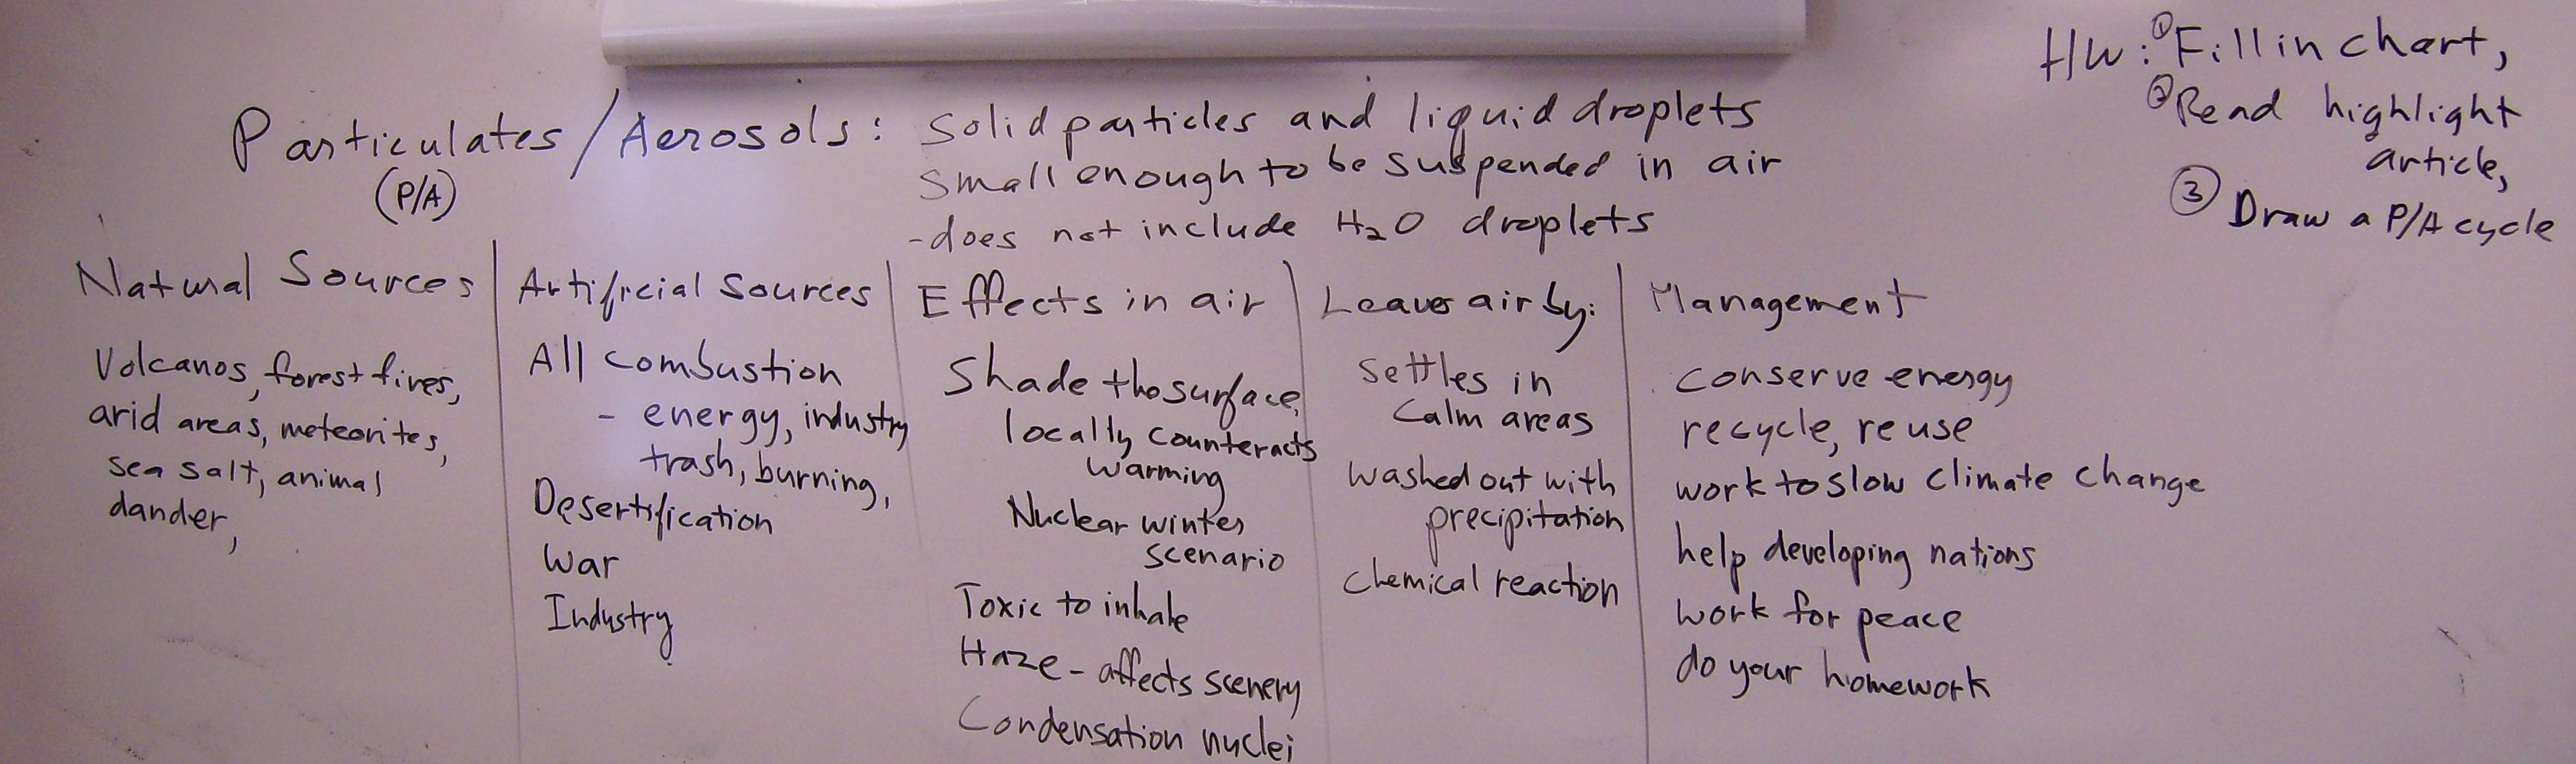 Particulates/Aerosols: Solid particles and liquid droplets
(P/A)
small enough to be suspended in air
-does not include H₂O droplets
HW: ① Fill in chart,
② Read highlight
article,
③ Draw a P/A cycle
Natural Sources
Volcanos, forest fires,
arid areas, meteorites,
sea salt, animal
dander,
Artificial Sources
All combustion
- energy, industry
trash, burning,
Desertification
War
Industry
Effects in air
Shade the surface,
locally counteracts
warming
Nuclear winter
scenario
Toxic to inhale
Haze - affects scenery
Condensation nuclei
Leaves air by:
Settles in
Calm areas
washed out with
precipitation
chemical reaction
Management
conserve energy
recycle, reuse
work to slow climate change
help developing nations
work for peace
do your homework